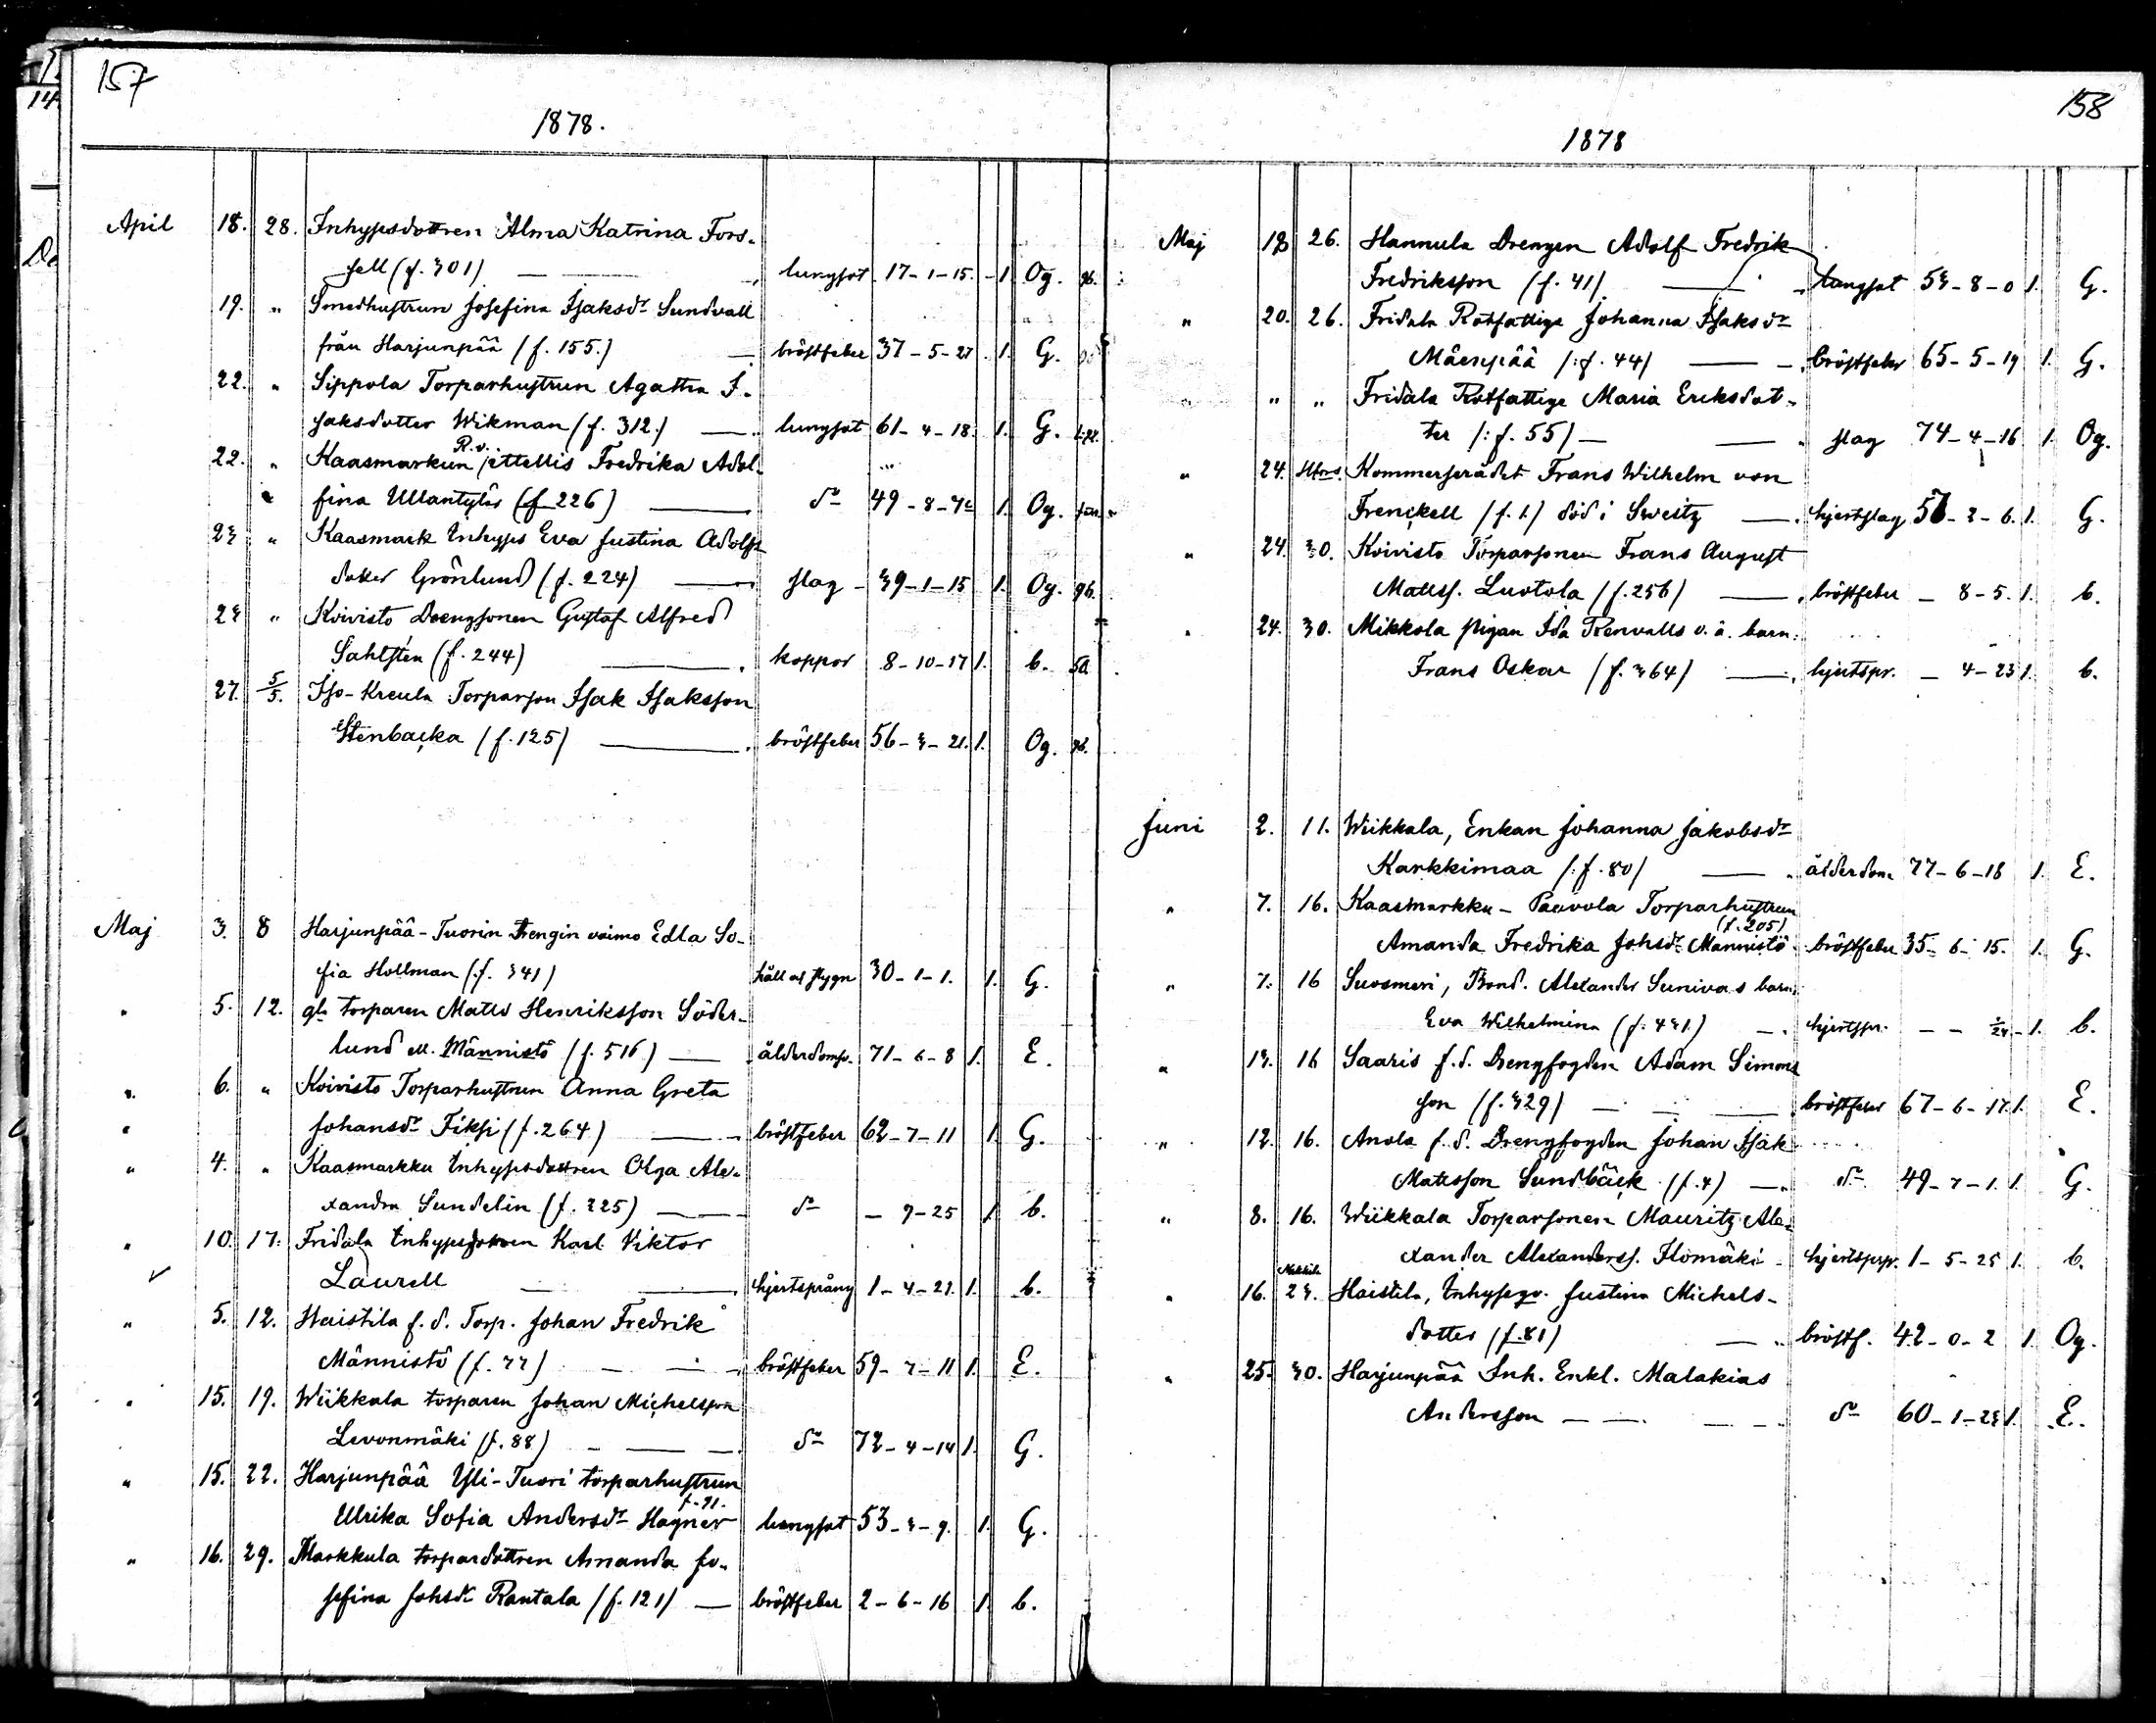 157
1878.
April 18. 28. Inhysesdottren Alma Katrina Fors-
sell (f. 301) — lungsot 17-1-15. 1. Og.
19. " Smedhustrun Josefina Isaksdr Sundvall
från Harjunpää (f. 155.) — bröstfeber 37-5-27 1. G.
22. " Sippola Torparhustrun Agatha I-
saksdotter Wikman (f. 312.) — lungsot 61-4-18. 1. G.
22. " Kaasmarkun R.v. ittellis Fredrika Adol-
fina Ullantytär (f. 226) — do 49-8- 1. Og.
23 " Kaasmark Inhyses Eva Justina Adolfs
dotter Grönlund (f. 224) — slag - 39-1-15 1. Og. 96.
23 " Koivisto Drengsonen Gustaf Alfred
Sahlstén (f. 244) — koppor 8-10-17 1. b. 50.
27. 5/5. Iso-Kreula Torparson Isak Isaksson
Stenbacka (f. 125) — bröstfeber 56-3-21. 1. Og.
Maj 3. 8 Harjunpää-Tuorin Drengin vaimo Edla So-
fia Hollman (f. 341) håll ol stygn 30-1-1. 1. G.
" 5. 12. gla torparen Matts Henriksson Söder-
lund ell. Männistö (f. 516) — ålderdomsv. 71-6-8 1. E.
" 6. " Koivisto Torparhustrun Anna Greta
" Johansdr Fiksi (f. 264) — bröstfeber 62-7-11 1. G.
" 4. " Kaasmarkku Inhysesdottren Olga Ale-
xandra Sundelin (f. 225) — do — 9-25 1. b.
" 10. 17. Fridala Inhysessonen Karl Viktor
Laurell — hjertsprång 1-4-21. 1. b.
" 5. 12. Haistila f.d. Torp. Johan Fredrik
Männistö (f. 77) — bröstfeber 59-7-11 1. E.
" 15. 19. Wiikkala torparen Johan Michelsson
Levonmäki (f. 88) — do 72-4-14 1. G.
" 15. 22. Harjunpää Yli-Tuori torparhustrun
f. 91.
Ulrika Sofia Andersdr Hagner lungsot 53-3-9. 1. G.
" 16. 29. Markkula torpardottren Amanda Jo-
sefina Johsdr Rantala (f. 121) — bröstfeber 2-6-16 1. b.
158
1878
Maj 18 26. Hannula Drengen Adolf Fredrik
Fredriksson (f. 41) — lungsot 53-8-0 1. G.
" 20. 26. Fridala Rotfattige Johanna Isaksdr
Mäenpää (f. 44) — bröstfeber 65-5-19 1. G.
" " " Fridala Rotfattige Maria Eriksdot-
ter (f. 55) — slag 74-4-16 1. Og.
" 24. Hfors. Kommerserådet Frans Wilhelm von
Frenckell (f. 1.) död i Sweitz — hjertslag -6. 1. G.
" 24. 30. Koivisto Torparsonen Frans August
Mattss. Luotola (f. 256) — bröstfeber — 8-5. 1. b.
" 24. 30. Mikkola pigan Ida Renvalls o.ä. barn:
Frans Oskar (f. 364) — hjertspr. — 4-23 1. b.
Juni 2. 11. Wiikkala, Enkan Johanna Jakobsdr
Karkkimaa (f. 80) — ålderdom 77-6-18 1. E.
" 7. 16. Kaasmarkku-Paavola Torparhustrun
(f. 205)
Amanda Fredrika Johsdr Männistö bröstfeber 35-6-15. 1. G.
" 7. 16 Suosmeri, Bond. Alexander Sunivas barn:
Eva Wilhelmina (f. 431.) — hjertspr. — — 1. b.
" 13. 16 Saaris f.d. Drengfogden Adam Simons
son (f. 329) — bröstfeber 67-6-17. 1. E.
" 12. 16. Anola f.d. Drengfogden Johan Isak
Matsson Sundbäck (f. 4) — do 49-7-1. 1. G.
" 8. 16. Wiikkala Torparsonen Mauritz Ale-
xander Alexanderss. Ilomäki - hjertsprp. 1-5-25 1. b.
" 16. 23. Haistila, Inhysesqv. Justina Michels-
dotter (f. 81) — bröstf. 42-0-2 1. Og.
" 25. 30. Harjunpää Inh. Enkl. Malakias
Andersson — do 60-1-23 1. E.